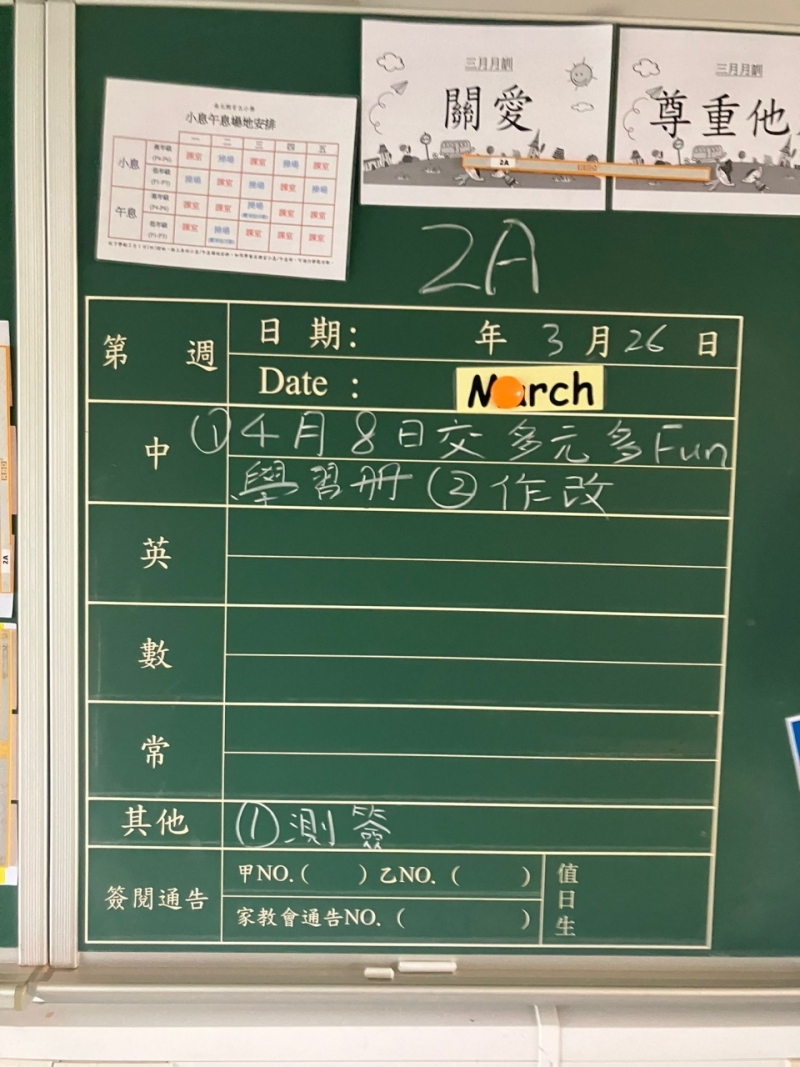 小息午息場地安排
一 二 三 四 五
小息 高年級 (P4-P6) 課室 操場 課室 操場 課室
低年級 (P1-P3) 操場 課室 操場 課室 操場
午息 高年級 (P4-P6) 課室 課室 操場 課室 課室
低年級 (P1-P3) 課室 操場 課室 課室 課室
三月月訓
關愛
2A
三月月訓
尊重他
2A
第 週
日期: 年 3 月 26 日
Date : March
中 ① 4月8日交多元多Fun
學習册 ② 作改
英
數
常
其他 ① 測簽
簽閱通告
甲NO.( ) 乙NO. ( )
家教會通告NO. ( )
值日生
2A